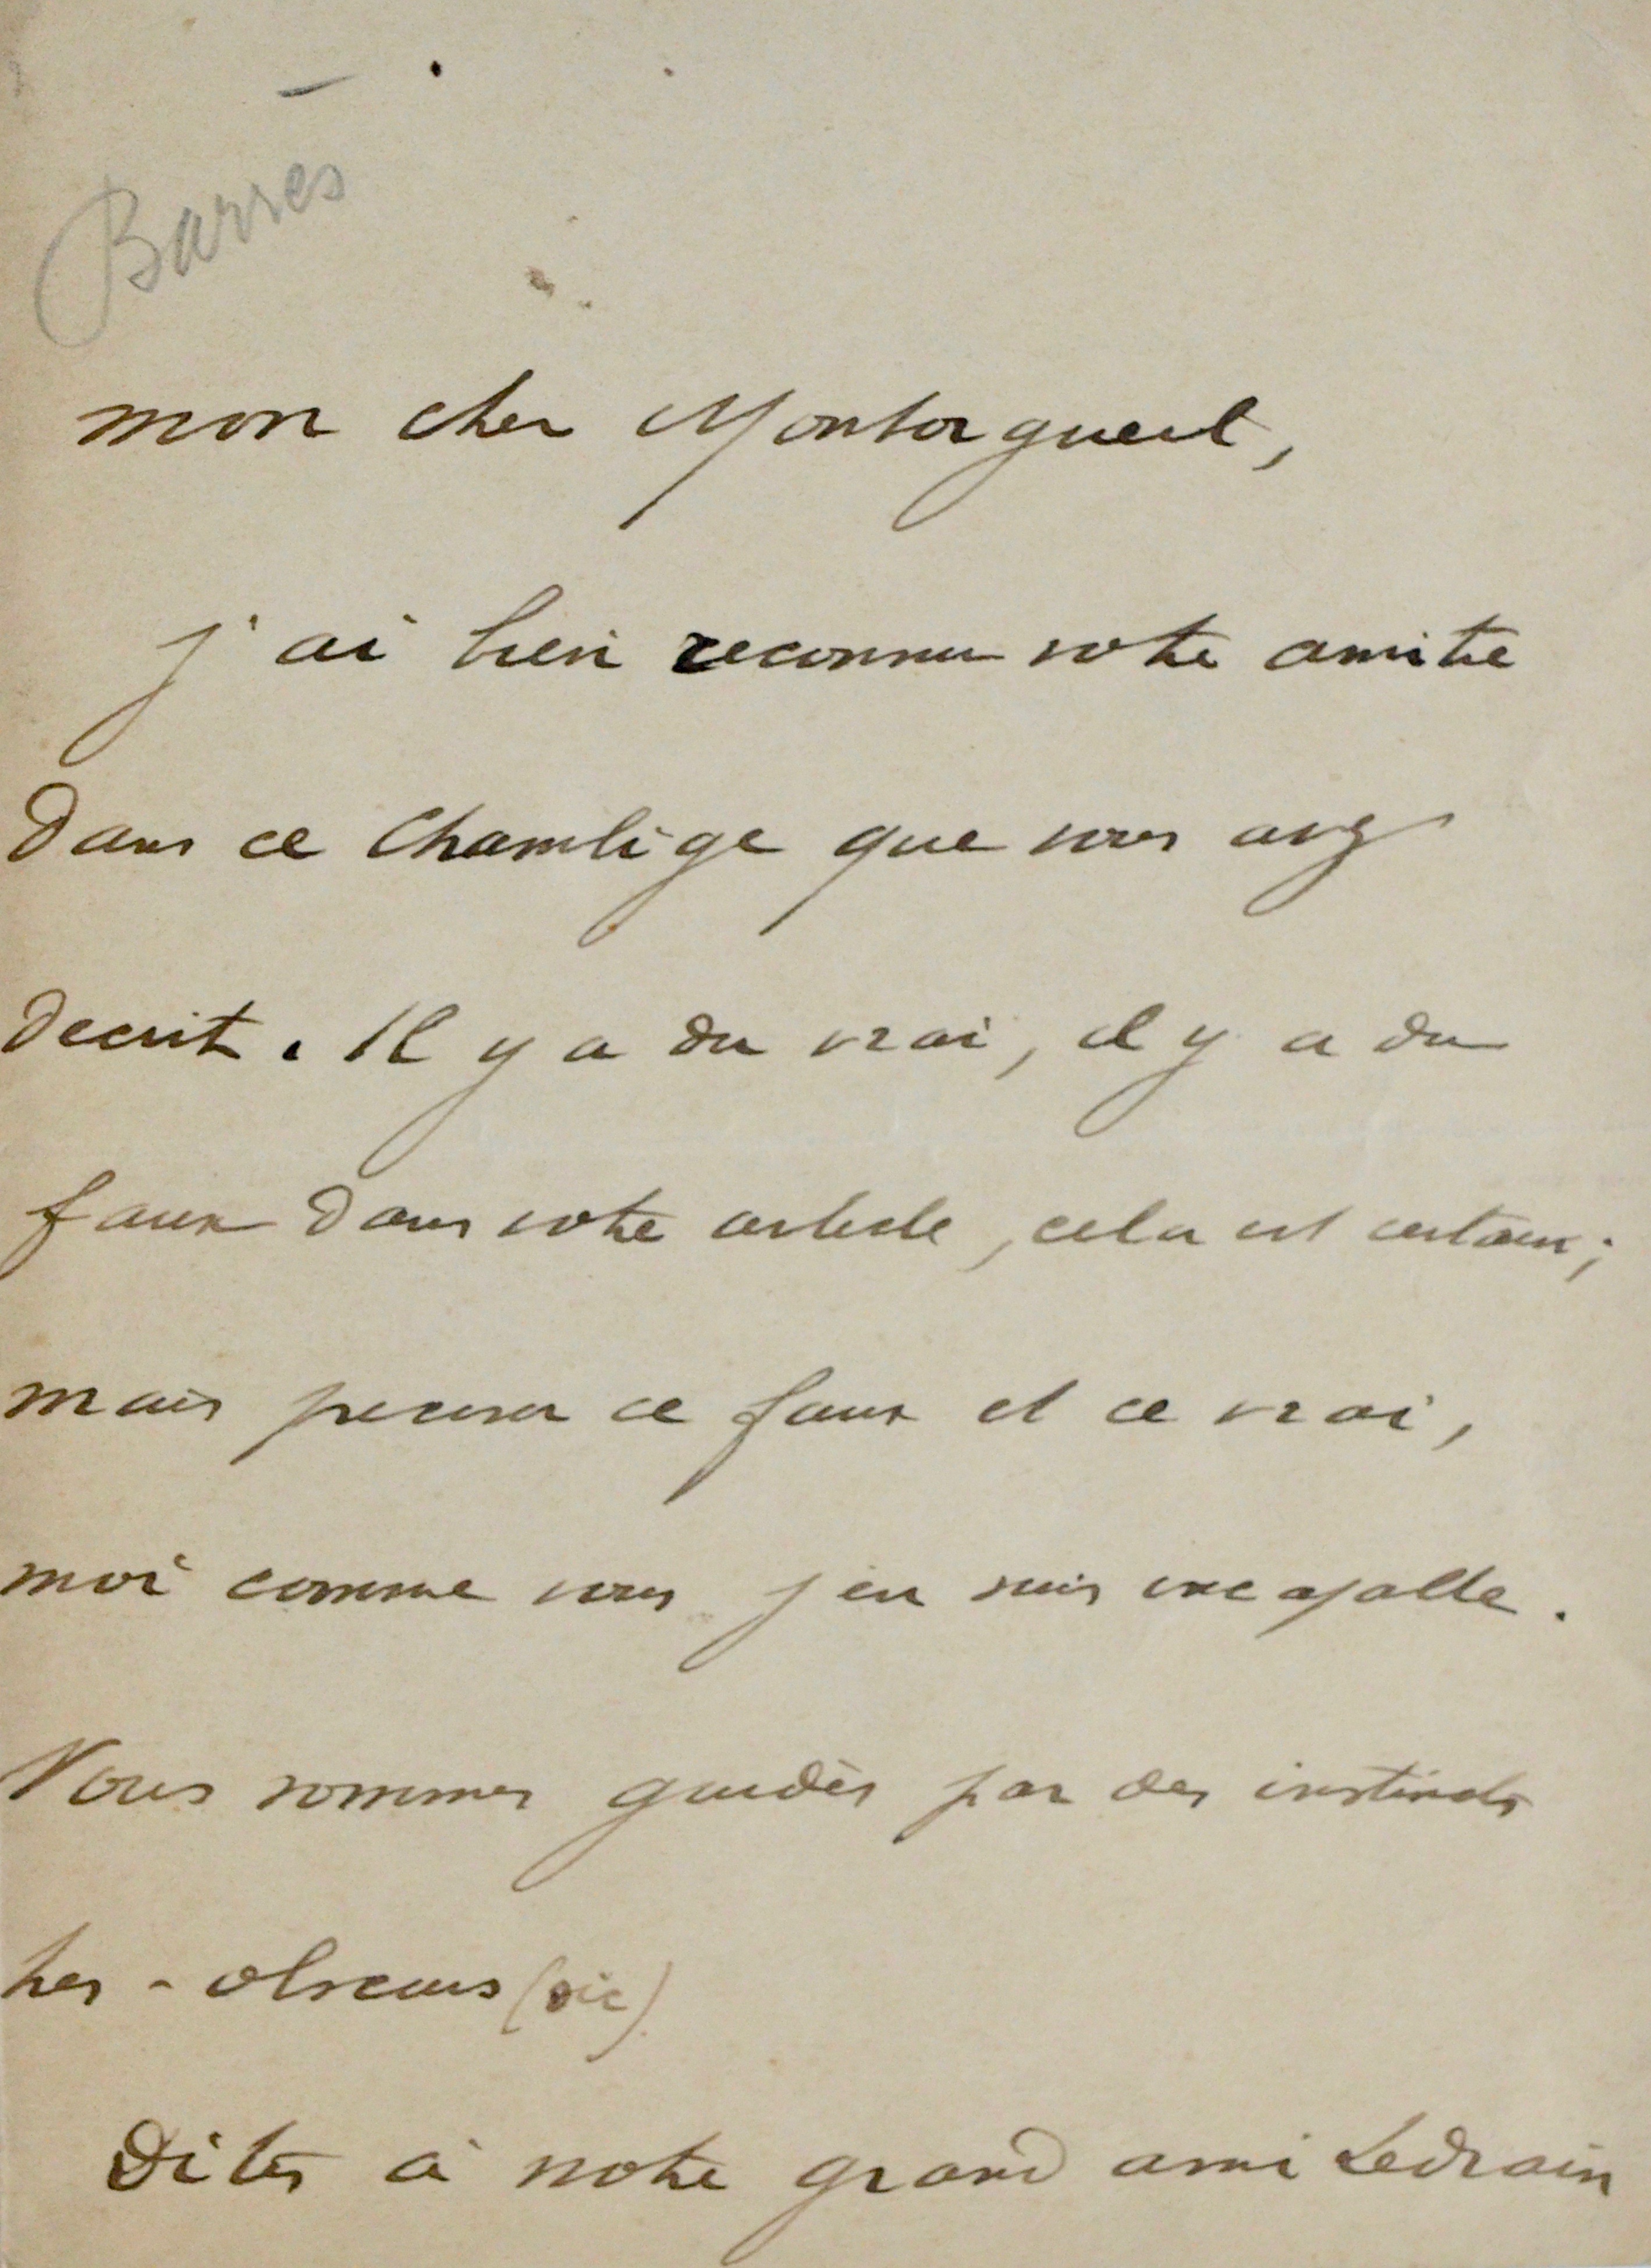 Barrès
mon cher Montorgueil,
j'ai bien reconnu votre amitié
dans ce Chambige que vous avez
decrit. Il y a du vrai, il y a du
faux dans votre article, cela est certain;
mais preciser ce faux et ce vrai,
moi comme vous j'en suis incapable.
Nous sommes guidés par des instincts
tres-obscurs (sic)
Dites à notre grand ami Ledrain